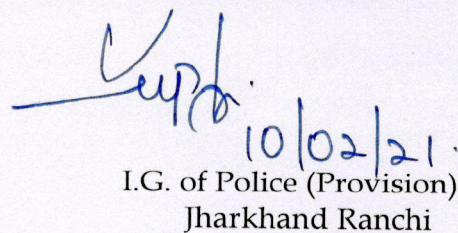 10/02/21.
I.G. of Police (Provision)
Jharkhand Ranchi